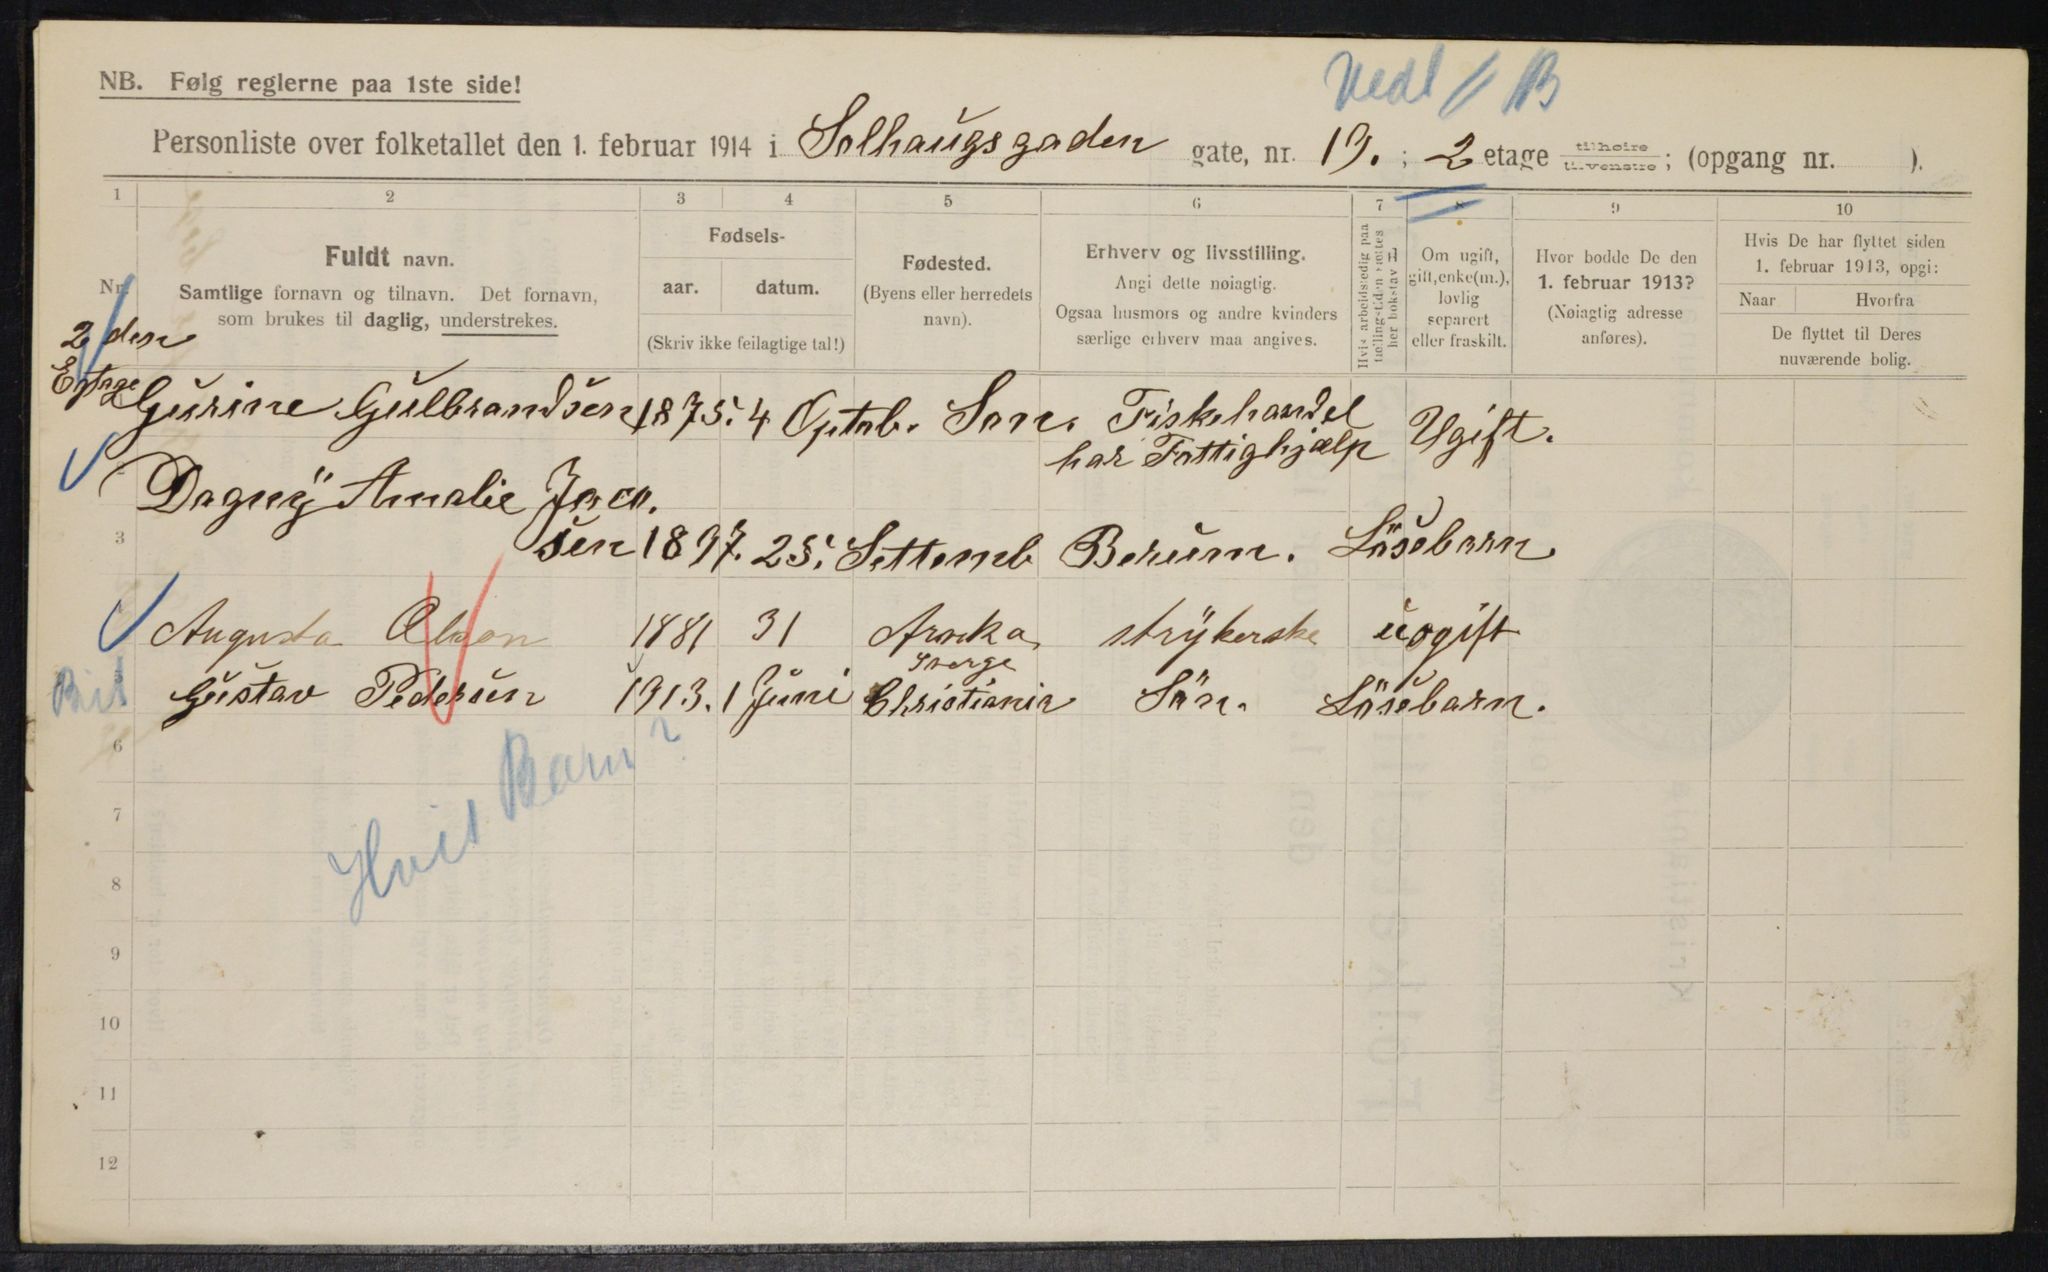 Vedl B
NB. Følg reglerne paa 1ste side!
Personliste over folketallet den 1. februar 1914 i Solhaugsgaden gate, nr. 19. ; 2 etage tilhøire tilvenstre ; (opgang nr. ).
1 2 3 4 5 6 7 8 9 10
Nr.
Fuldt navn.
Samtlige fornavn og tilnavn. Det fornavn,
som brukes til daglig, understrekes.
Fødsels-
aar. datum.
(Skriv ikke feilagtige tal!)
Fødested.
(Byens eller herredets
navn).
Erhverv og livsstilling.
Angi dette nøiagtig.
Ogsaa husmors og andre kvinders
særlige erhverv maa angives.
Hvis arbeidsledig paa
tællingstiden sættes
her bokstav L
Om ugift,
gift, enke(m.),
lovlig
separert
eller fraskilt.
Hvor bodde De den
1. februar 1913?
(Nøiagtig adresse
anføres).
Hvis De har flyttet siden
1. februar 1913, opgi:
Naar Hvorfra
De flyttet til Deres
nuværende bolig.
2 den
Etage
Gurine Gulbrandsen 1875. 4 Son. Fiskehandel Ugift.
har Fattighjælp
Dagny Amalie Jaco.
3 sen 1897. 25. Settemb Berum. Løsebarn.
Augusta Olson 1881 31 strykerske uogift
Sverge
5 Gustav Pedersen 1913. 1 Juni Christiania Søn. Løsebarn.
6
Hvis Barn?
7
8
9
10
11
12